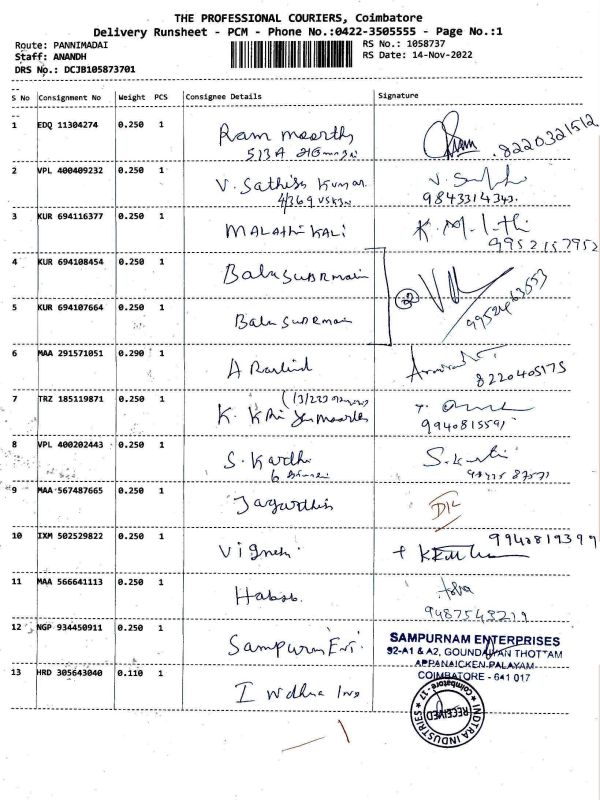 THE PROFESSIONAL COURIERS, Coimbatore
Delivery Runsheet - PCM - Phone No.:0422-3505555 - Page No.:1
Route: PANNIMADAI RS No.: 1058737
Staff: ANANDH RS Date: 14-Nov-2022
DRS No.: DCJB105873701
S No Consignment No Weight PCS Consignee Details Signature
1 EDQ 11304274 0.250 1 Ram moorthy 8220321512
513A
2 VPL 400409232 0.250 1 V. Sathiss Kumar V.
4/369 9843314343
3 KUR 694116377 0.250 1 MALAthi KALi K.
9952157952
4 KUR 694108454 0.250 1 Balasubrmain
5 KUR 694107664 0.250 1 Balasubrmain 9952463553
6 MAA 291571051 0.290 1 A
8220405175
7 TRZ 185119871 0.250 1 K.
9940815591
8 VPL 400202443 0.250 1 S. Karthi S.
6
9 MAA 567487665 0.250 1
10 IXM 502529822 0.250 1 Vignesh 9940819399
11 MAA 566641113 0.250 1 Habib
9487543211
12 NGP 934450911 0.250 1 Sampurn Ent. SAMPURNAM ENTERPRISES
92-A1 & A2, GOUNDAYAN THOTTAM
APPANAICKEN PALAYAM
COIMBATORE - 641 017
13 HRD 305643040 0.110 1 Indhra Ins
INDTRA INDUSTRIES
Coimbatore-17
RECEIVED